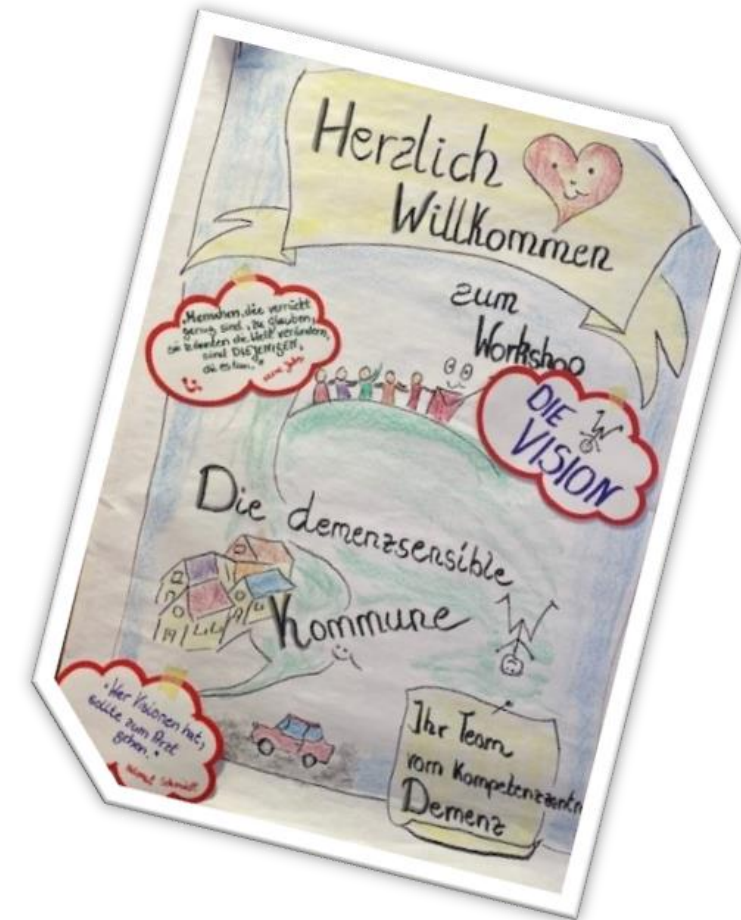 Herzlich
Willkommen
zum
Workshop
„Menschen, die verrückt
genug sind, zu glauben,
sie könnten die Welt verändern,
sind DIEJENIGEN,
die es tun."
DIE
VISION
Die demenzsensible
Kommune
"Wer Visionen hat,
sollte zum Arzt
gehen."
Helmut Schmidt
Ihr Team
vom Kompetenzzentr
Demenz